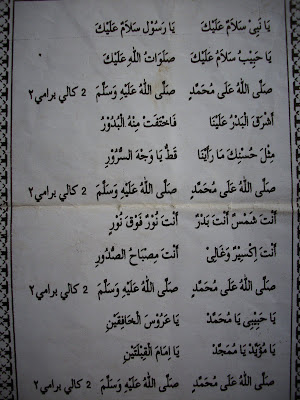 يَا نَبِىْ سَلاَمٌ عَلَيْكَ يَا رَسُوْل سَلاَمٌ عَلَيْكَ
يَا حَبِيْبُ سَلاَمٌ عَلَيْكَ صَلَوَاتُ اللهِ عَلَيْكَ
صَلَّى اللهُ عَلَى مُحَمَّدٍ صَلَّى اللهُ عَلَيْهِ وَسَلَّمَ 2 كالي برامي٢
أَشْرَقَ الْبَدْرُ عَلَيْنَا فَاخْتَفَتْ مِنْهُ الْبُدُوْرُ
مِثْلَ حُسْنِكَ مَا رَأَيْنَا قَطُّ يَا وَجْهَ السُّرُوْرِ
صَلَّى اللهُ عَلَى مُحَمَّدٍ صَلَّى اللهُ عَلَيْهِ وَسَلَّمَ 2 كالي برامي٢
أَنْتَ شَمْسٌ أَنْتَ بَدْرٌ أَنْتَ نُوْرٌ فَوْقَ نُوْرٍ
أَنْتَ إِكْسِيْرٌ وَغَالِىْ أَنْتَ مِصْبَاحُ الصُّدُوْرِ
صَلَّى اللهُ عَلَى مُحَمَّدٍ صَلَّى اللهُ عَلَيْهِ وَسَلَّمَ 2 كالي برامي٢
يَا حَبِيْبِىْ يَا مُحَمَّدْ يَا عَرُوْسَ الْخَافِقَيْنِ
يَا مُؤَيَّدْ يَا مُمَجَّدْ يَا إِمَامَ الْقِبْلَتَيْنِ
صَلَّى اللهُ عَلَى مُحَمَّدٍ صَلَّى اللهُ عَلَيْهِ وَسَلَّمَ 2 كالي برامي٢